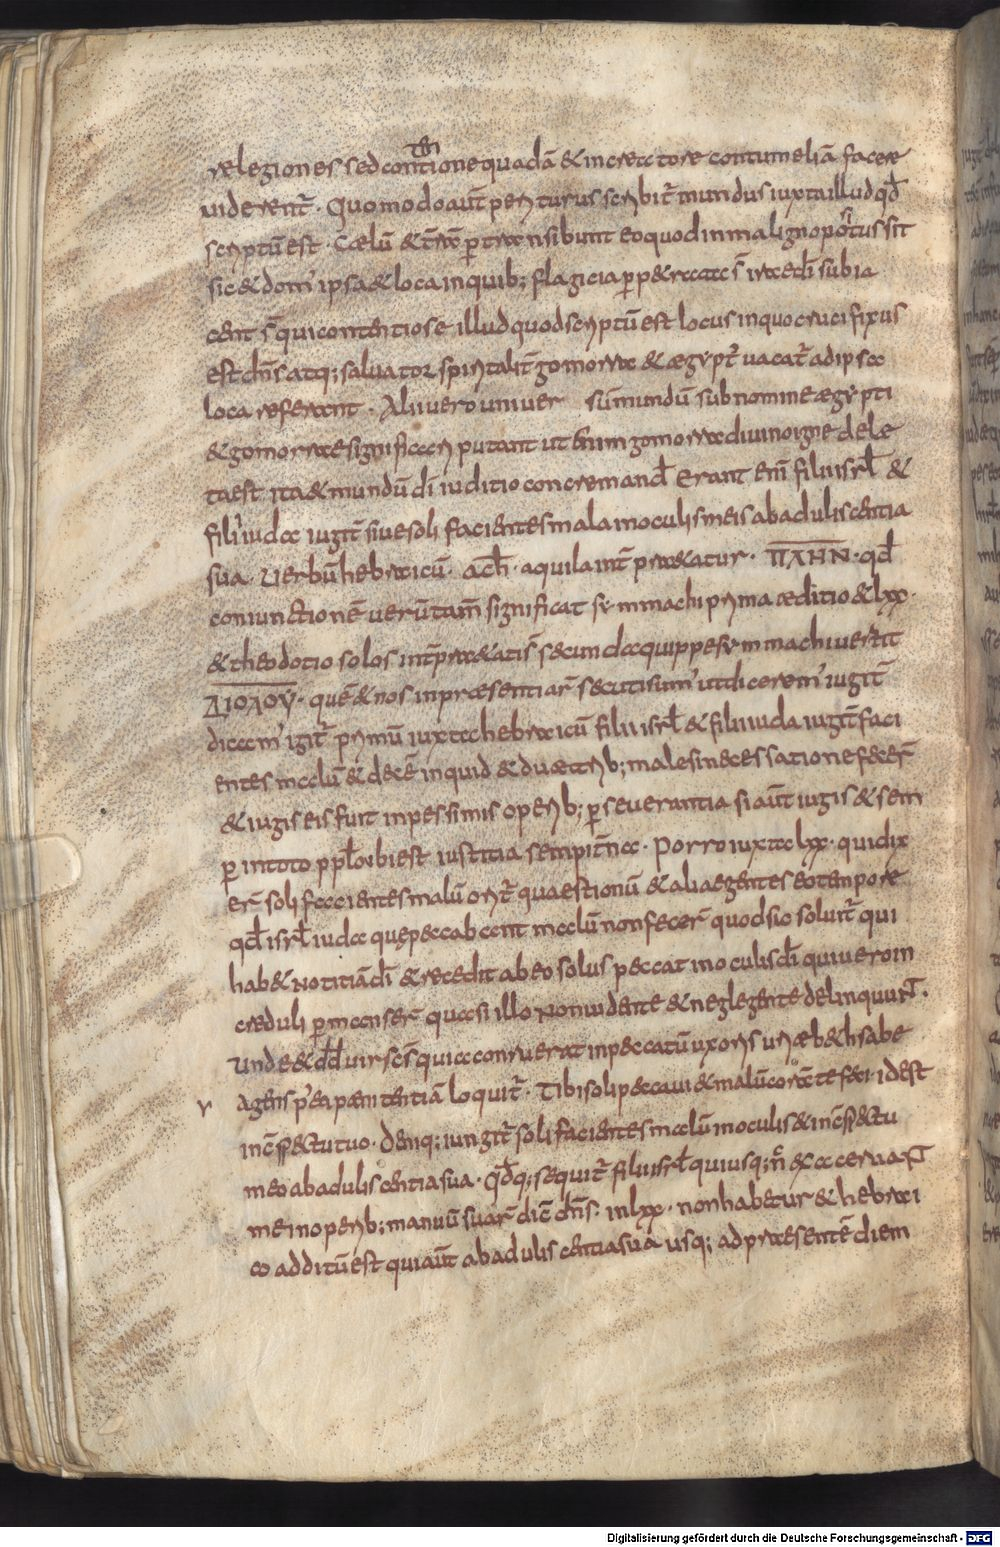 relegiones sed contentione quadā & increatore contumeliā facere
viderent̄. Quomodo aut̄ periturus scribit̄ mundus iuxta illud qđ
scriptū est. Cælū & t̄ra ꝑ transibunt eo quod in maligno positus sit
sic & dom' ipsa & loca in quib; flagicia ꝑpetrata s̄ irae dī subia
cent s̄ qui contentiose illud quod scriptū est locus in quo crucifixus
est dn̄s atq; salvator spiritalit̄ gomorra & ægypt' vacat̄ ad ipsa
loca referant. Alii vero univer sū mundū sub nomine ægypti
& gomorrae significari putant ut
taest ita & mundū dī iuditio concremand̄ Erant eni filii isrł &
filii iuda iugit̄ sive soli facientes mala in oculis meis ab aduliscentia
sua. Verbū hebraicū. ach. aquila int̄pretatur. ΠΛΗΝ. qđ
coniunctionē verūtam̄ significat symmachi prima æditio & lxx.
& theodotio solos int̄pretatis s̄ secunda quippe symmachi vertit
ΔΙΟΛΟΥ. quē & nos in præsentiar̄ secuti sum' ut dicerem' iugit̄
dicam' igit̄ primū iuxta hebraicū filii isrł & filii iuda iugit̄ faci
entes malū & decē inquid & duae trib; male sine cessatione fecer̄
& iugis eis fuit in pessimis operib; ꝑseverantia si aut̄ iugis & sem
ꝑ in toto ppl̄o ubi est iustitia sempit̄na. Porro iuxta lxx. qui dix
er̄ soli facientes malū orit̄ quaestionū & aliae gentes eo tempore
qđ isrł iuda quę peccabant malū non fecer̄ quod sic soluit̄ qui
hab& notitiā dī & recedit ab eo solus peccat in oculis dī qui vero in
creduli ꝑmanser̄ quasi illo non vidente & neglegente delinquunt.
Unde & dđ vir scs̄ quia conruerat in peccatū uxoris uriæ b&hsabe
agens p'ea pænitentiā loquit̄. Tibi soli peccavi & malū corā te feci. id est
in cōspectu tuo. Deniq; iungit̄ soli facientes malū in oculis & in cōspectu
meo ab adulisc entia sua. Qđq; sequit̄ filii isrł qui usq; n̄c exacervant
me in operib; manuū suar̄ dic̄ dn̄s. in lxx. non habetur & hebrai
co additū est qui aut̄ ab adulis centia sua usq; ad præsentē diem
Digitalisierung gefördert durch die Deutsche Forschungsgemeinschaft - DFG